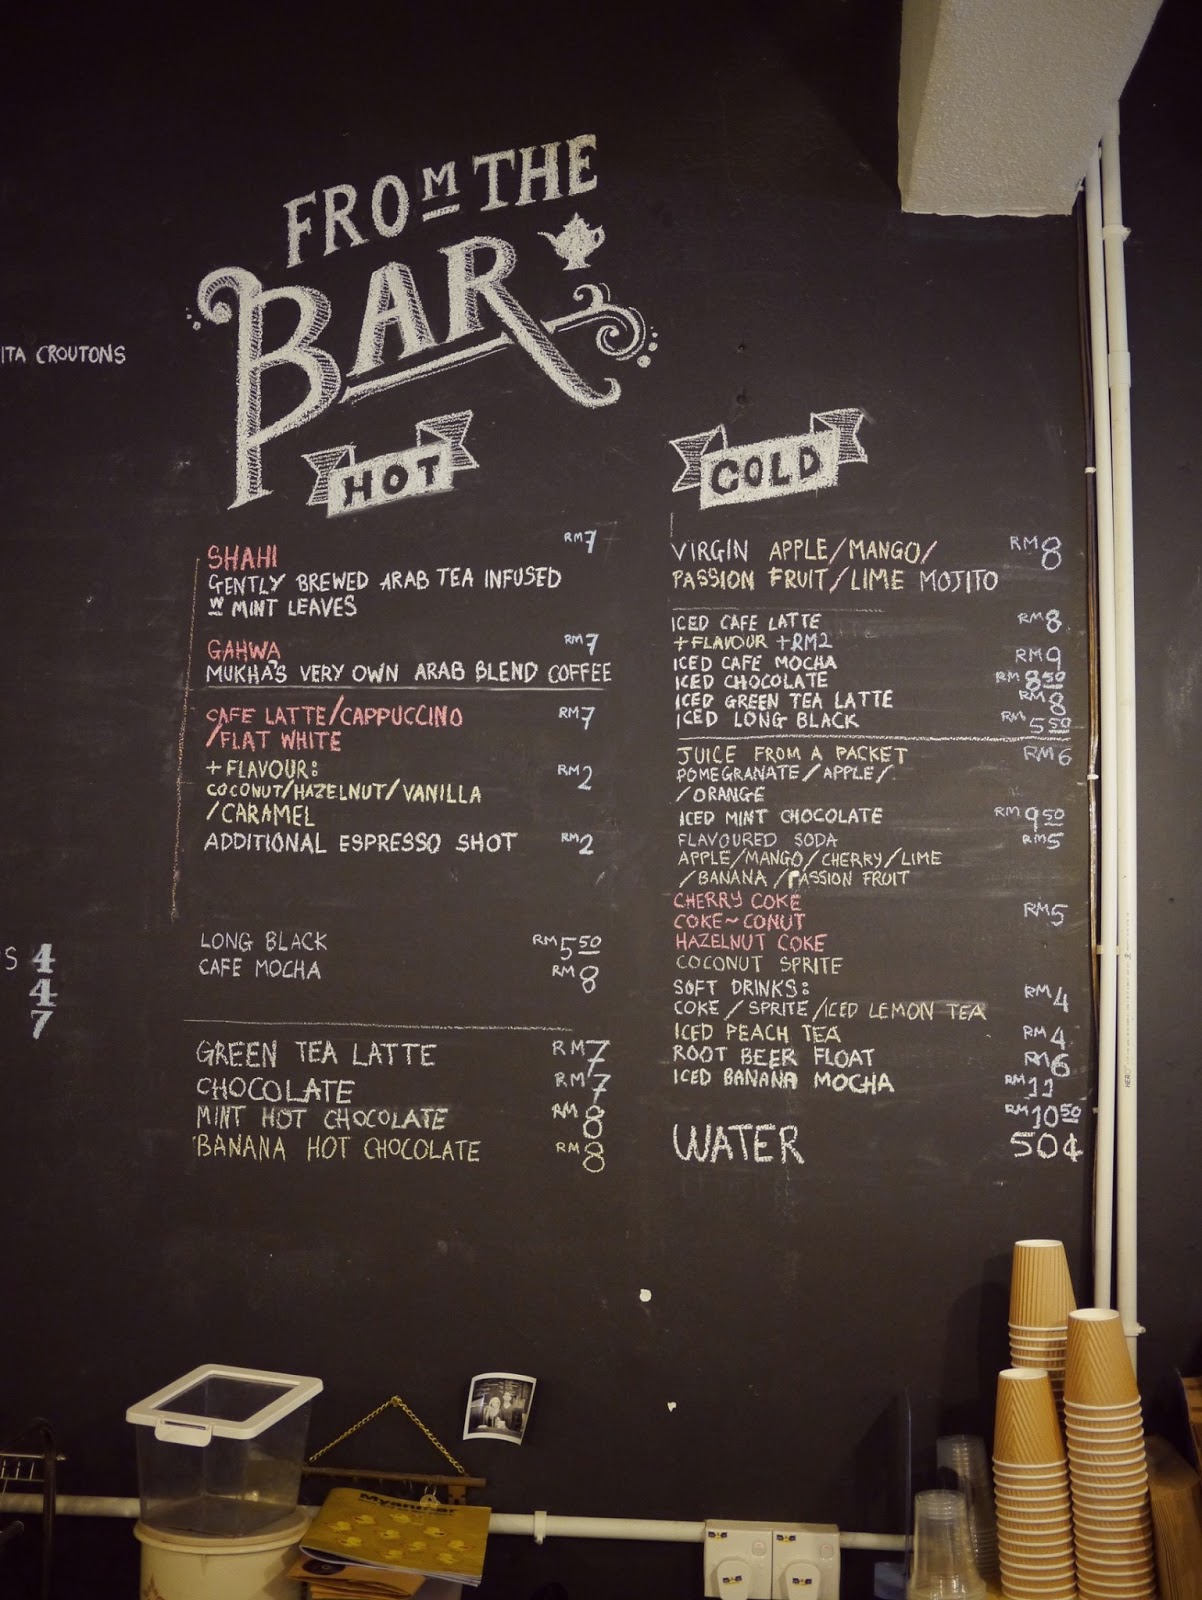 FROM THE
BAR
ITA CROUTONS
HOT
SHAHI RM7
GENTLY BREWED ARAB TEA INFUSED
W MINT LEAVES
GAHWA RM7
MUKHA'S VERY OWN ARAB BLEND COFFEE
CAFE LATTE/CAPPUCCINO RM7
/FLAT WHITE
+ FLAVOUR: RM2
COCONUT/HAZELNUT/VANILLA
/CARAMEL
ADDITIONAL ESPRESSO SHOT RM2
LONG BLACK RM5 50
CAFE MOCHA RM8
S 4
4
7
GREEN TEA LATTE RM7
CHOCOLATE RM7
MINT HOT CHOCOLATE RM8
BANANA HOT CHOCOLATE RM8
COLD
VIRGIN APPLE/MANGO/ RM8
PASSION FRUIT/LIME MOJITO
ICED CAFE LATTE RM8
+FLAVOUR +RM2
ICED CAFE MOCHA RM9
ICED CHOCOLATE RM8 50
ICED GREEN TEA LATTE RM8
ICED LONG BLACK RM5 50
JUICE FROM A PACKET RM6
POMEGRANATE/APPLE/
/ORANGE
ICED MINT CHOCOLATE RM9 50
FLAVOURED SODA RM5
APPLE/MANGO/CHERRY/LIME
/BANANA/PASSION FRUIT
CHERRY COKE RM5
COKE~CONUT
HAZELNUT COKE
COCONUT SPRITE
SOFT DRINKS: RM4
COKE/SPRITE/ICED LEMON TEA
ICED PEACH TEA RM4
ROOT BEER FLOAT RM6
ICED BANANA MOCHA RM11
RM10 50
WATER 50¢
Myanmar